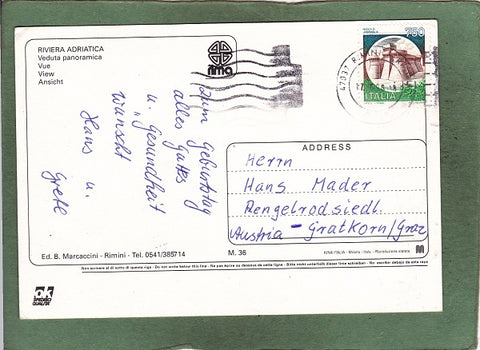 RIVIERA ADRIATICA
Veduta panoramica
Vue
View
Ansicht
ilma
750
ITALIA
zum Geburtstag
alles gutes
u. gesundheit
wünscht
Hans u.
Grete
ADDRESS
Herrn
Hans Mader
Rengelrodsiedl.
Austria - Gratkorn/Graz
Ed. B. Marcaccini - Rimini - Tel. 0541/385714
M. 36
Non scrivere al di sotto di questa riga - Do not write below this line - Ne pas écrire au dessous de cette ligne - Bitte nicht unterhalb dieser linie schreiben - No escribir debajo de esta raya